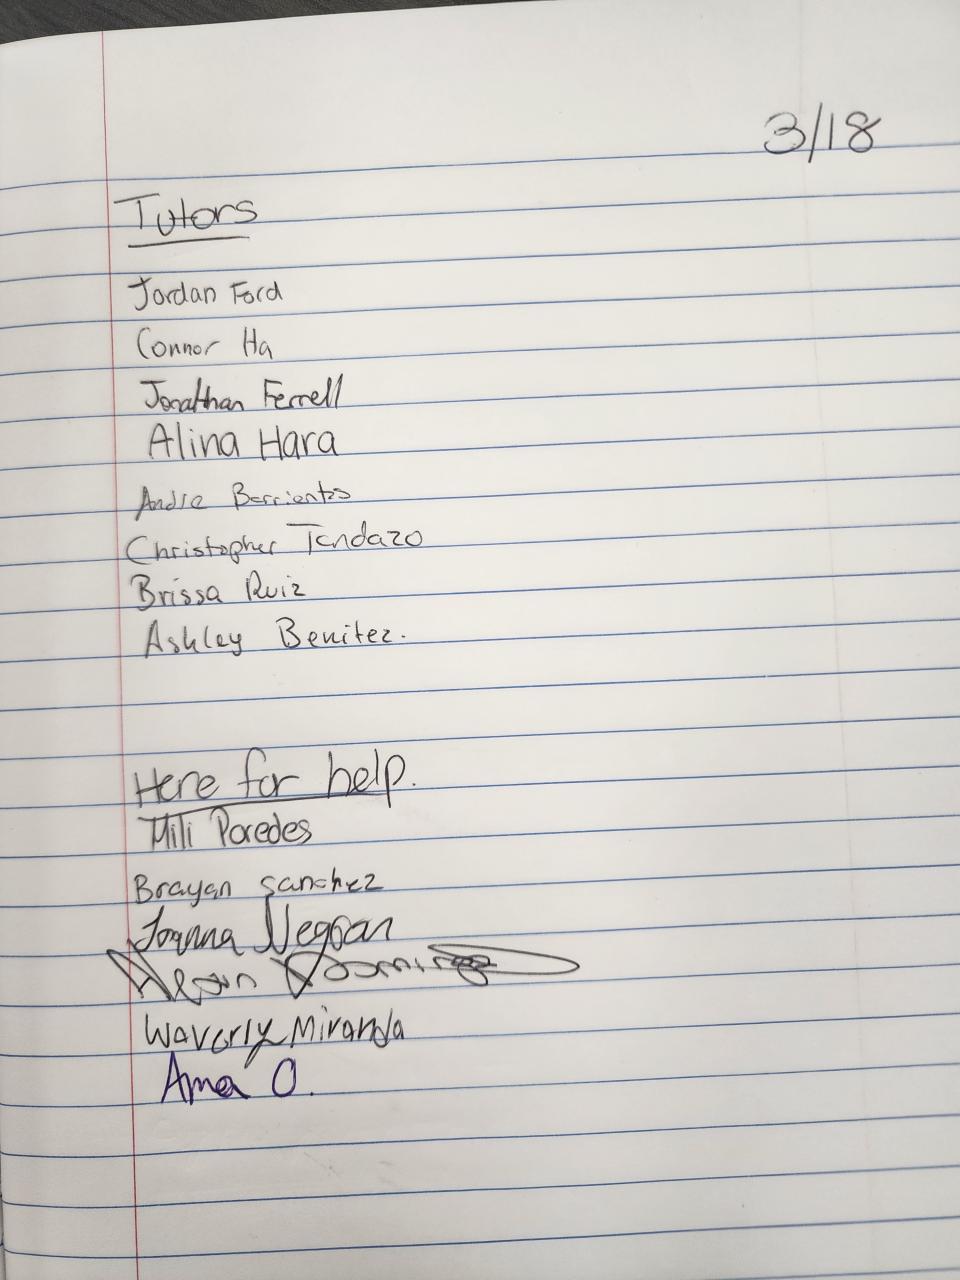 3/18
Tutors
Jordan Ford
Connor Ha
Jonathan Ferrell
Alina Hara
Andre Barrientos
Christopher Tandazo
Brissa Ruiz
Ashley Benitez.
Here for help.
Mili Paredes
Brayan Sanchez
Joanna Negron
Waverly Miranda
Ama O.